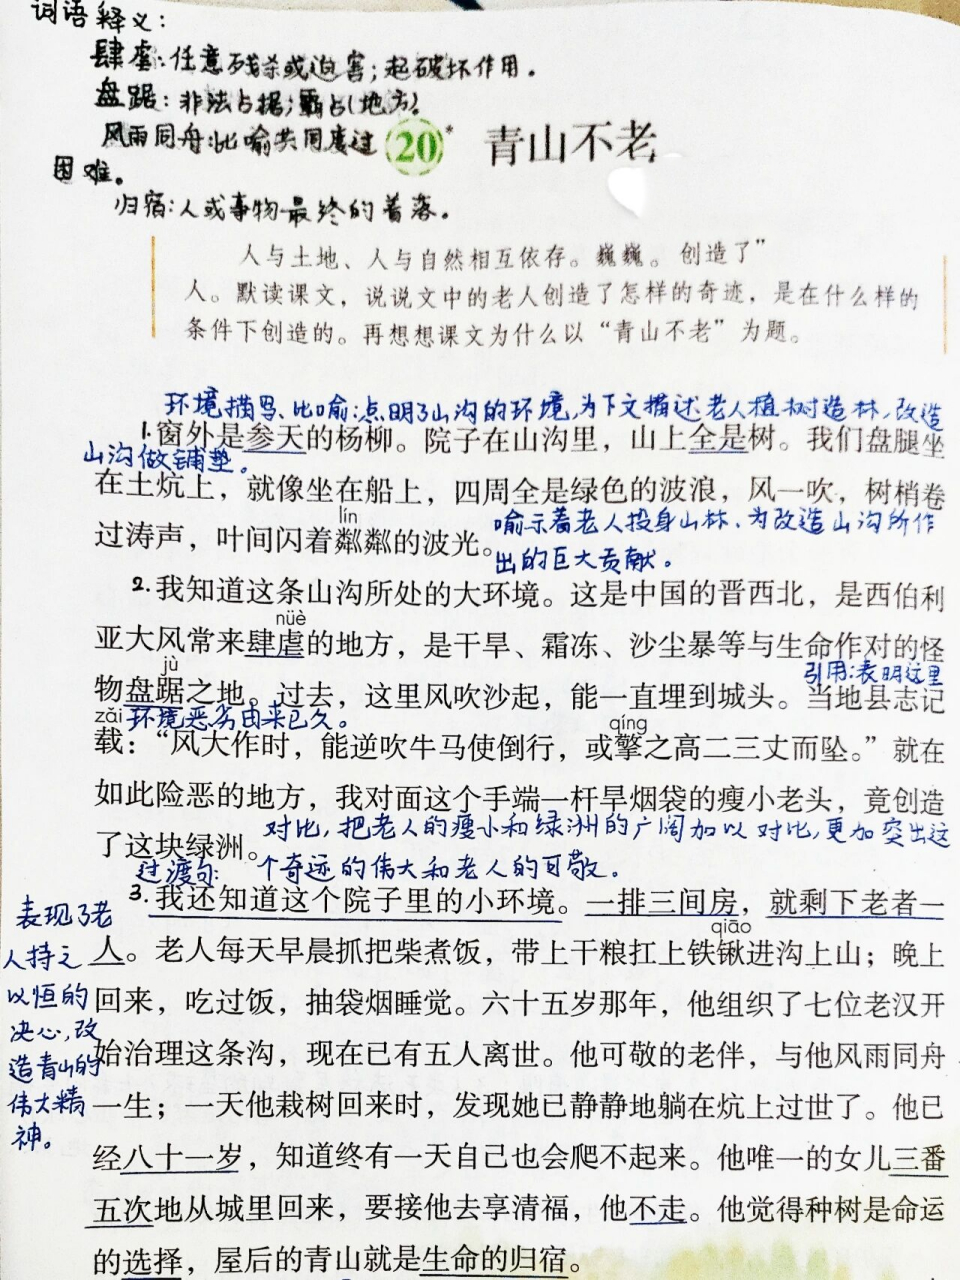 词语释义：
肆虐：任意残杀或迫害；起破坏作用。
盘踞：非法占据；霸占（地方）。
风雨同舟：比喻共同度过
困难。
归宿：人或事物最终的着落。
20* 青山不老
人与土地、人与自然相互依存。巍巍。创造了”
人。默读课文，说说文中的老人创造了怎样的奇迹，是在什么样的
条件下创造的。再想想课文为什么以“青山不老”为题。
环境描写、比喻：点明了山沟的环境，为下文描述老人植树造林、改造
山沟做铺垫。
1.窗外是参天的杨柳。院子在山沟里，山上全是树。我们盘腿坐
在土炕上，就像坐在船上，四周全是绿色的波浪，风一吹，树梢卷
lín
过涛声，叶间闪着粼粼的波光。
喻示着老人投身山林、为改造山沟所作
出的巨大贡献。
2.我知道这条山沟所处的大环境。这是中国的晋西北，是西伯利
nüè
亚大风常来肆虐的地方，是干旱、霜冻、沙尘暴等与生命作对的怪
jù
引用：表明这里
物盘踞之地。过去，这里风吹沙起，能一直埋到城头。当地县志记
环境恶劣由来已久。
zǎi qíng
载：“风大作时，能逆吹牛马使倒行，或擎之高二三丈而坠。”就在
如此险恶的地方，我对面这个手端一杆旱烟袋的瘦小老头，竟创造
了这块绿洲。
对比，把老人的瘦小和绿洲的广阔加以对比，更加突出这
个奇迹的伟大和老人的可敬。
过渡句：
3.我还知道这个院子里的小环境。一排三间房，就剩下老者一
qiāo
人。老人每天早晨抓把柴煮饭，带上干粮扛上铁锹进沟上山；晚上
回来，吃过饭，抽袋烟睡觉。六十五岁那年，他组织了七位老汉开
始治理这条沟，现在已有五人离世。他可敬的老伴，与他风雨同舟
一生；一天他栽树回来时，发现她已静静地躺在炕上过世了。他已
经八十一岁，知道终有一天自己也会爬不起来。他唯一的女儿三番
五次地从城里回来，要接他去享清福，他不走。他觉得种树是命运
的选择，屋后的青山就是生命的归宿。
表现了老
人持之
以恒的
决心，改
造青山的
伟大精
神。